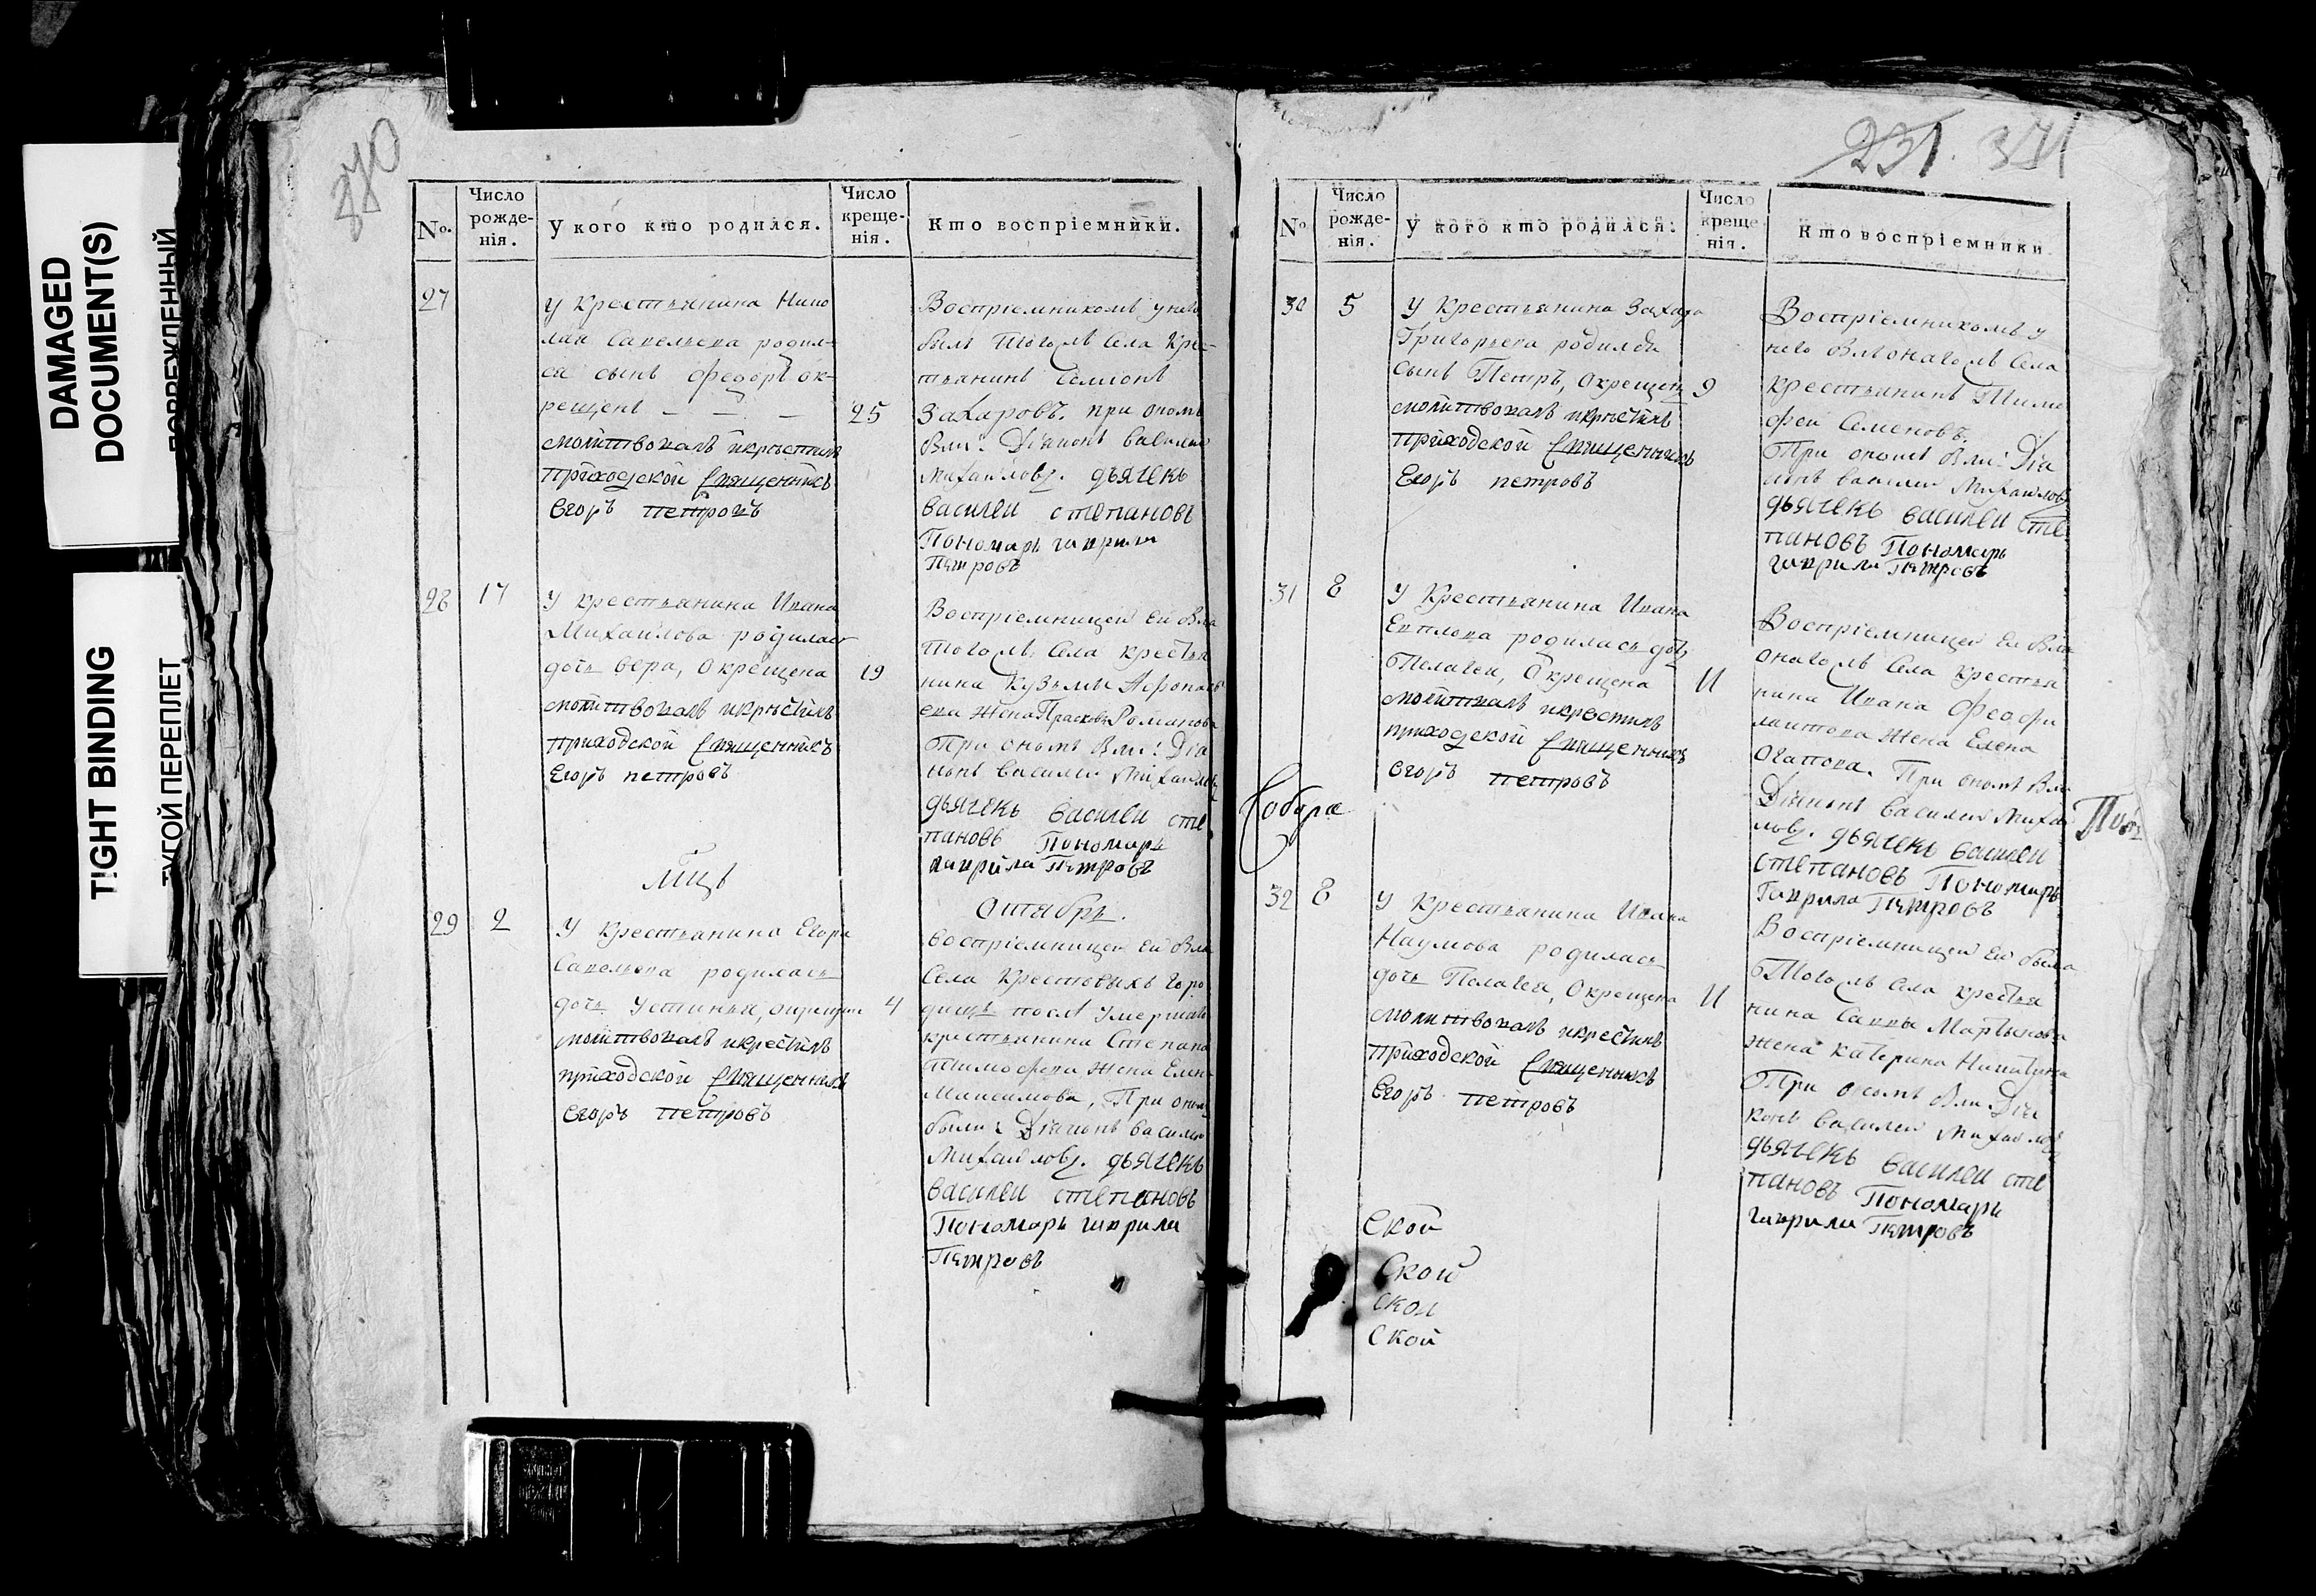 DAMAGED
DOCUMENT(S)
ПОВРЕЖДЕННЫЙ
TIGHT BINDING
ТУГОЙ ПЕРЕПЛЕТ
370
№.
Число рожде-нія.
У кого кто родился.
Число креще-нія.
Кто воспріемники.
27
У крестьянина Нико
лая Савельева родил-
ся сынъ Федоръ ок-
рещенъ — — — 25
молитвовалъ икрестилъ
приходской Священникъ
Егоръ петровъ
Воспріемникомъ у него
былъ тогожъ села Кре-
стьянинъ Семіонъ
Захаровъ. при ономъ
Были: Діяконъ Василеи
Михаиловъ. дьячекъ
василеи степановъ
Пономарь гаврила
Петровъ
28 17
У крестьянина Ивана
Михаилова родилась
дочь Вера, Окрещена 19
молитвовалъ икрестилъ
приходской Священникъ
Егоръ петровъ
Воспріемницеи Ей Была
тогожъ села крестья
нина Кузьмы Афонась
ева жена Прасковья Романова
При ономъ Были: Дія
конъ Василеи Михаиловъ
дьячекъ василеи сте
пановъ Пономарь
гаврила Петровъ
Мцъ
Октябрь.
29 2
У крестьянина Егора
Савельева родилась
дочь Устинья, окрещена 4
молитвовалъ икрестилъ
приходской Священникъ
Егоръ петровъ
Воспріемницеи Ей Была
Села Крестовыхъ Горо
дищь после умершаго
крестьянина Степана
Тимофеева жена Елена
Максимова, При ономъ
были: Діяконъ Василеи
Михаиловъ. дьячекъ
василеи степановъ
Пономарь гаврила
Петровъ
231. 371
№
Число рожде-нія.
У кого кто родился:
Число креще-нія.
Кто воспріемники
30 5
У крестьянина Захара
Григорьева родился
сынъ Петръ, окрещенъ 9
молитвовалъ икрестилъ
приходской Священникъ
Егоръ петровъ
Воспріемникомъ у
него Былъ онагожъ Села
крестьянинъ Тимо
феи Семеновъ.
При ономъ Были: Дія
конъ василеи Михаиловъ
дьячекъ василеи сте
пановъ Пономарь
гаврила Петровъ
31 8
У крестьянина Ивана
Евплова родилась дочь
Пелагеи, Окрещена 11
молитвалъ икрестилъ
приходской Священникъ
Егоръ петровъ
Воспріемницеи Ей Была
онагожъ Села Крестья
нина Ивана Феофи
лактова жена Елена
Агапова. При ономъ Были
Діяконъ Василеи Михаи
ловъ. дьячекъ василеи
степановъ Пономарь
Гаврила Петровъ
Собора
32 8
У крестьянина Ивана
Наумова родилась
дочь Пелагея, Окрещена 11
молитвовалъ икрестилъ
приходской Священникъ
Егоръ петровъ
Воспріемницеи Ей была
Тогожъ Села крестья
нина Саввы Мартынова
жена Катерина Никитина
При ономъ Были Дія
конъ Василеи Михаиловъ
дьячекъ василеи сте
пановъ Пономарь
гаврила Петровъ
Ской
Ской
Скои
Ской